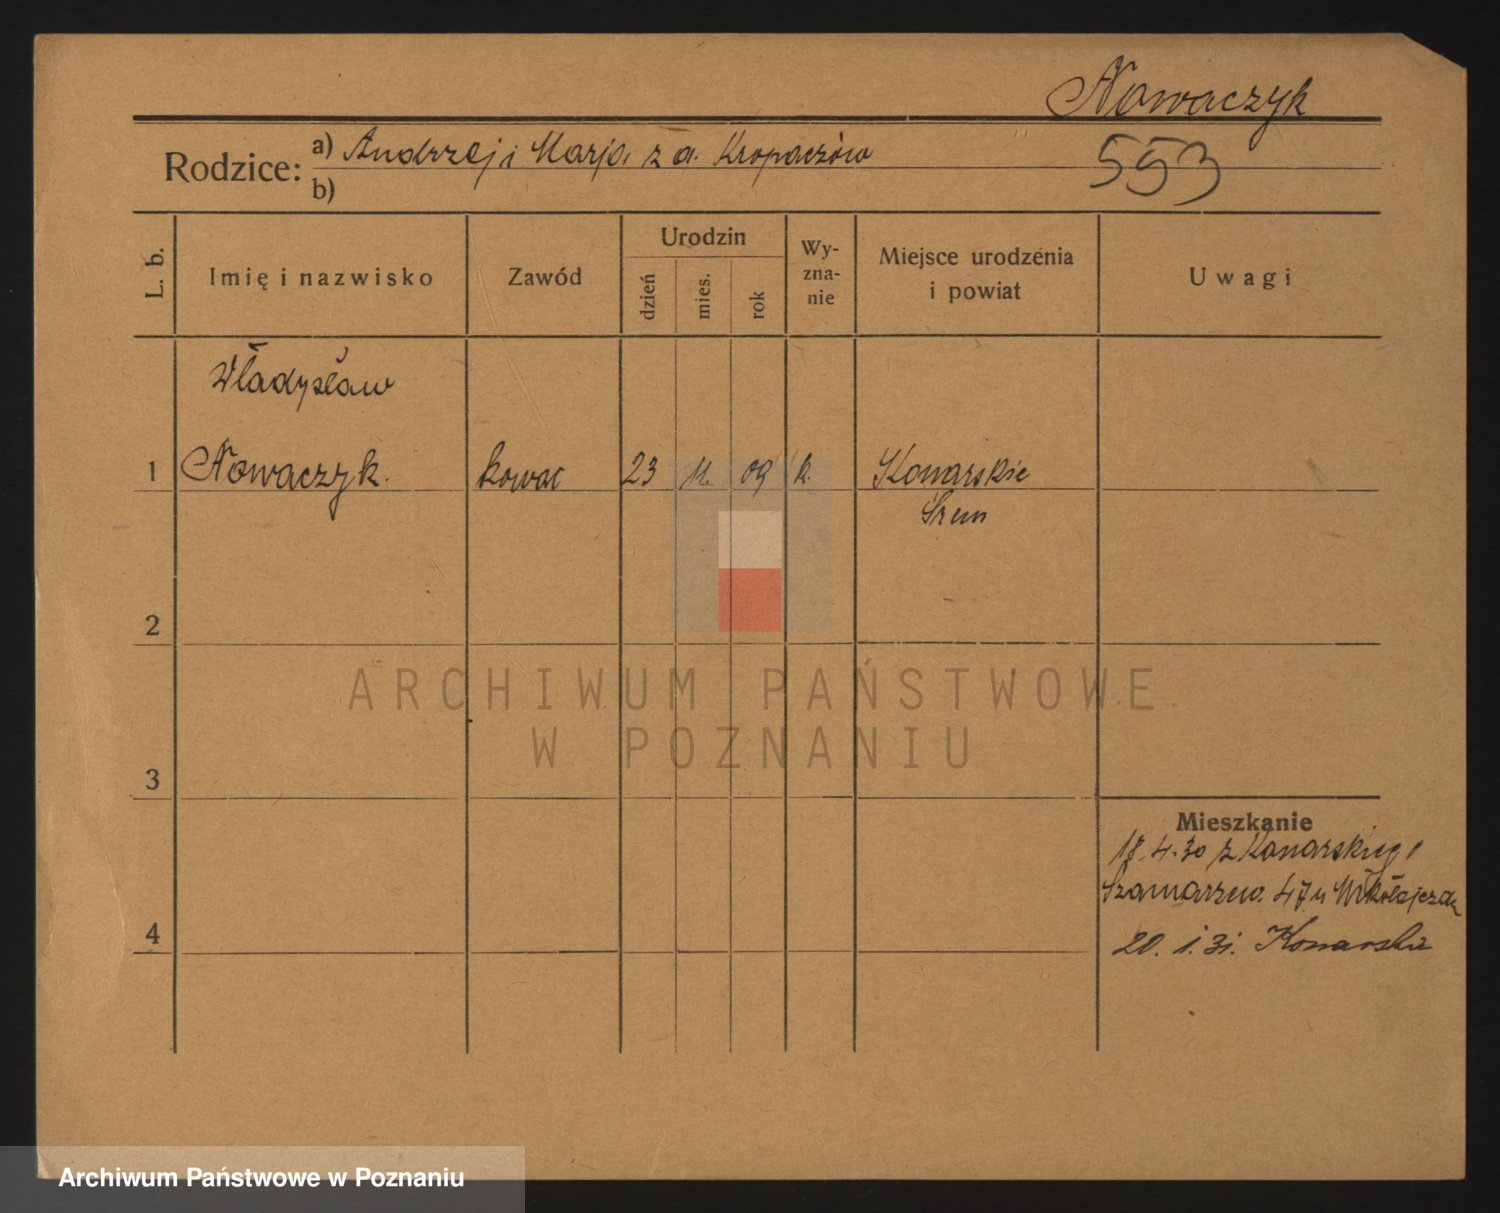 Nowaczyk
553
Rodzice: a) Andrzej i Marja z d. Kropaczów
b)
L. b.
Imię i nazwisko
Zawód
Urodzin
dzień
mies.
rok
Wy-
zna-
nie
Miejsce urodzenia
i powiat
Uwagi
Władysław
1 Nowaczyk. kowal 23 11. 09 k. Konarskie
Śrem
2
ARCHIWUM PAŃSTWOWE
W POZNANIU
3
Mieszkanie
17.4.30 z Konarskiego
Szamarzew. 47 u Mikołajczak
4
20. 1. 31. Konarskie
Archiwum Państwowe w Poznaniu